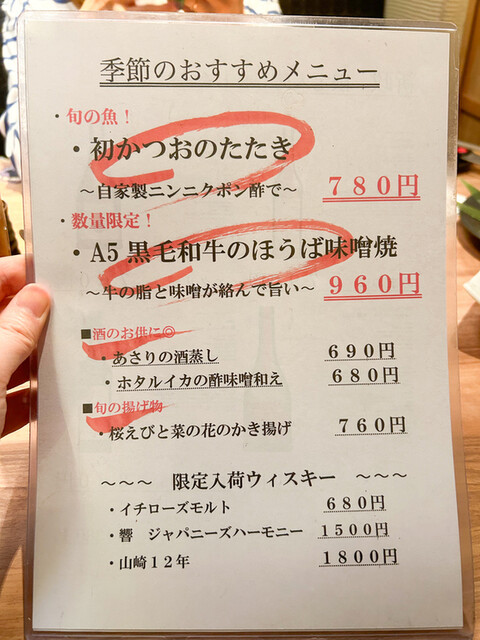 季節のおすすめメニュー
・旬の魚！
・初かつおのたたき
～自家製ニンニクポン酢で～ 780円
・数量限定！
・A5黒毛和牛のほうば味噌焼
～牛の脂と味噌が絡んで旨い～ 960円
■酒のお供に◎
・あさりの酒蒸し 690円
・ホタルイカの酢味噌和え 680円
■旬の揚げ物
・桜えびと菜の花のかき揚げ 760円
～～～ 限定入荷ウィスキー ～～～
・イチローズモルト 680円
・響 ジャパニーズハーモニー 1500円
・山崎12年 1800円